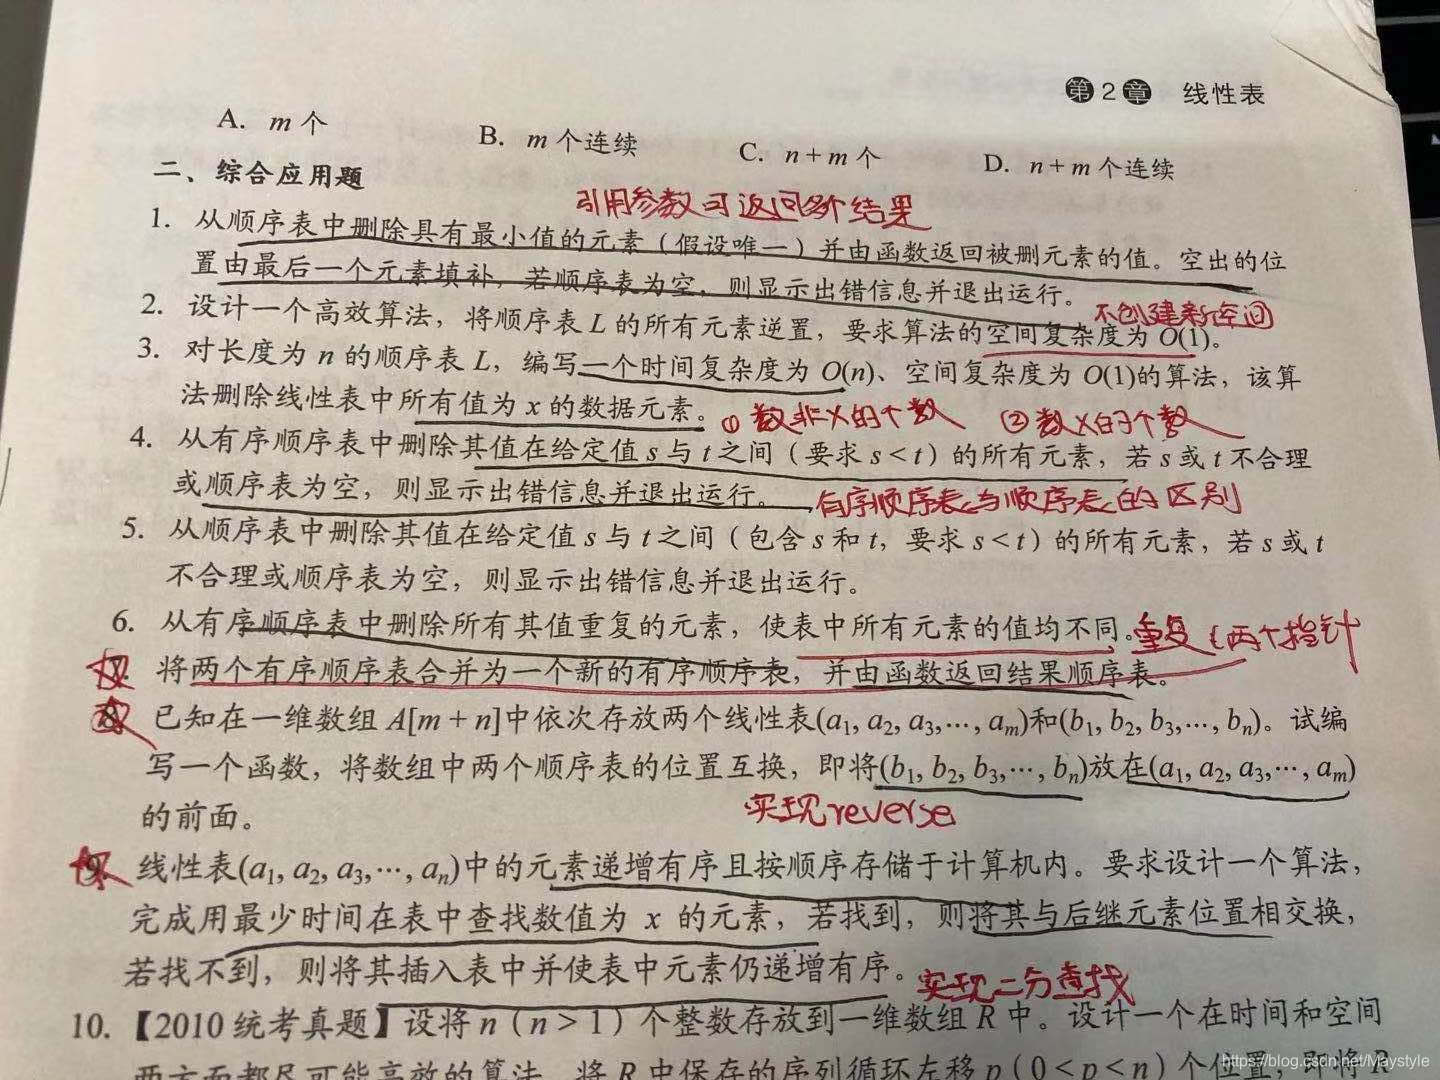 第2章 线性表
A. m 个 B. m 个连续 C. n + m 个 D. n + m 个连续
二、综合应用题
引用参数可返回多个结果
1. 从顺序表中删除具有最小值的元素（假设唯一）并由函数返回被删元素的值。空出的位
置由最后一个元素填补，若顺序表为空，则显示出错信息并退出运行。
不创建新空间
2. 设计一个高效算法，将顺序表 L 的所有元素逆置，要求算法的空间复杂度为 O(1)。
3. 对长度为 n 的顺序表 L，编写一个时间复杂度为 O(n)、空间复杂度为 O(1)的算法，该算
法删除线性表中所有值为 x 的数据元素。 ① 数非X的个数 ② 数X的个数
4. 从有序顺序表中删除其值在给定值 s 与 t 之间（要求 s < t）的所有元素，若 s 或 t 不合理
或顺序表为空，则显示出错信息并退出运行。 有序顺序表与顺序表的区别
5. 从顺序表中删除其值在给定值 s 与 t 之间（包含 s 和 t，要求 s < t）的所有元素，若 s 或 t
不合理或顺序表为空，则显示出错信息并退出运行。
6. 从有序顺序表中删除所有其值重复的元素，使表中所有元素的值均不同。重复 两个指针
7. 将两个有序顺序表合并为一个新的有序顺序表，并由函数返回结果顺序表。
8. 已知在一维数组 A[m + n]中依次存放两个线性表(a1, a2, a3,…, am)和(b1, b2, b3,…, bn)。试编
写一个函数，将数组中两个顺序表的位置互换，即将(b1, b2, b3,…, bn)放在(a1, a2, a3,…, am)
的前面。 实现reverse
9. 线性表(a1, a2, a3,…, an)中的元素递增有序且按顺序存储于计算机内。要求设计一个算法，
完成用最少时间在表中查找数值为 x 的元素，若找到，则将其与后继元素位置相交换，
若找不到，则将其插入表中并使表中元素仍递增有序。 实现二分查找
10. 【2010 统考真题】设将 n（n > 1）个整数存放到一维数组 R 中。设计一个在时间和空间
两方面都尽可能高效的算法，将 R 中保存的序列循环左移 p（0 < p < n）个位置，即将 R
https://blog.csdn.net/Maystyle